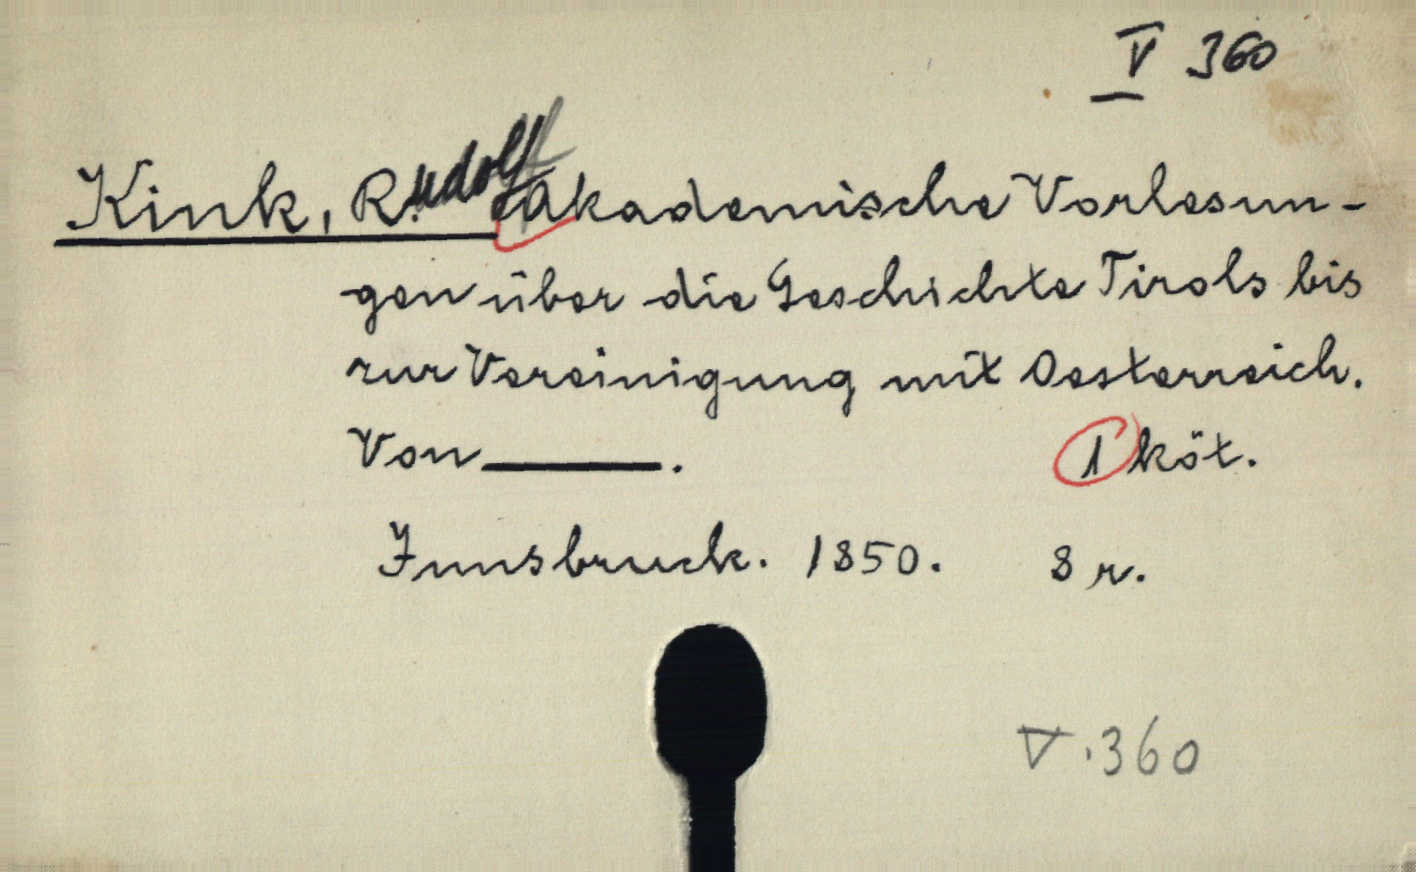 V 360
Kink, Rudolf Akademische Vorlesun-
gen über die Geschichte Tirols bis
zur Vereinigung mit Oesterreich.
Von ———. 1 köt.
Innsbruck. 1850. 8 r.
V. 360